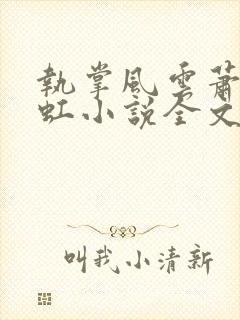 執掌風雲蕭
虹小說全文
叫我小清新